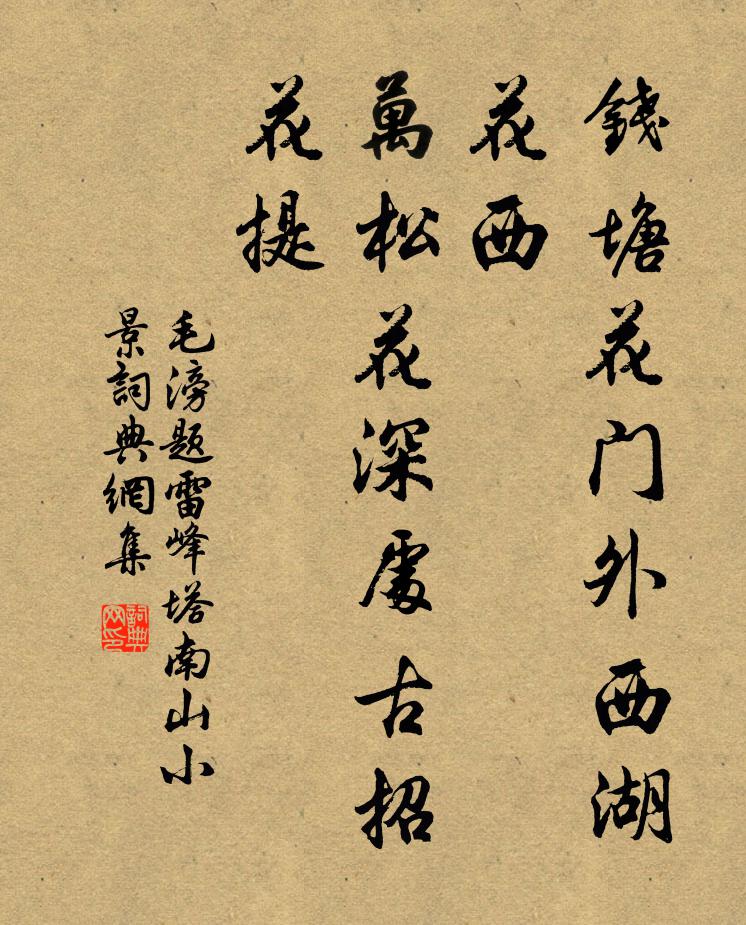 錢塘花门外西湖
花西
萬松花深處古招
花提
毛滂题雷峰塔南山小
景詞典網集
詞典
网印